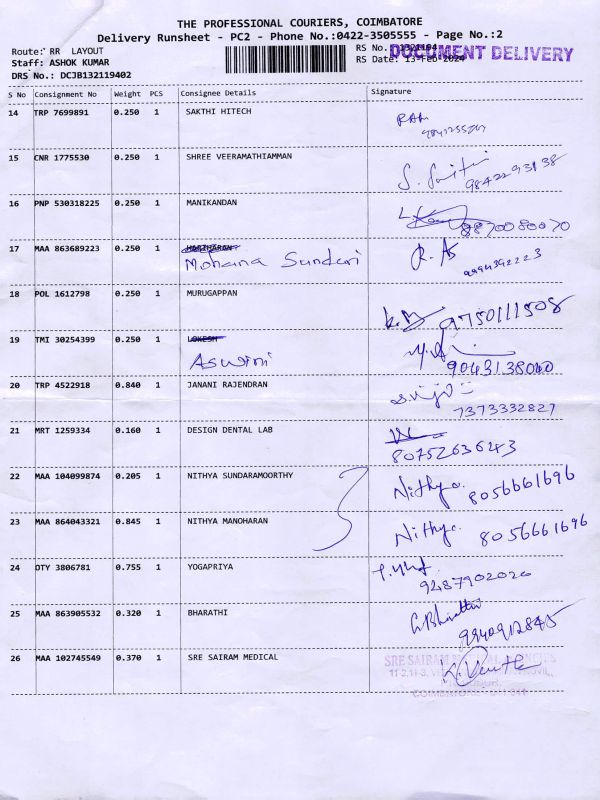 THE PROFESSIONAL COURIERS, COIMBATORE
Delivery Runsheet - PC2 - Phone No.:0422-3505555 - Page No.:2
Route: RR LAYOUT
RS No. 1321194
DOCUMENT DELIVERY
Staff: ASHOK KUMAR
RS Date: 13-Feb-2024
DRS No.: DCJB132119402
S No Consignment No Weight PCS Consignee Details Signature
14 TRP 7699891 0.250 1 SAKTHI HITECH
15 CNR 1775530 0.250 1 SHREE VEERAMATHIAMMAN
9842293138
16 PNP 530318225 0.250 1 MANIKANDAN
8870080070
17 MAA 863689223 0.250 1 HARIHARAN R. As
Mohana Sundari 9994392223
18 POL 1612798 0.250 1 MURUGAPPAN
9750111508
19 TMI 30254399 0.250 1 LOKESH
Aswini 9043138040
20 TRP 4522918 0.840 1 JANANI RAJENDRAN
7373332827
21 MRT 1259334 0.160 1 DESIGN DENTAL LAB
80752636243
22 MAA 104099874 0.205 1 NITHYA SUNDARAMOORTHY Nithya. 8056661696
23 MAA 864043321 0.845 1 NITHYA MANOHARAN Nithya. 8056661696
24 OTY 3806781 0.755 1 YOGAPRIYA
9487902026
25 MAA 863905532 0.320 1 BHARATHI G Bharathi
9940912845
26 MAA 102745549 0.370 1 SRE SAIRAM MEDICAL SRE SAIRAM
COIMBATORE